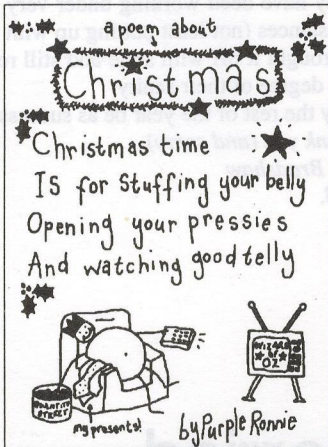 a poem about
Christmas
Christmas time
Is for stuffing your belly
Opening your pressies
And watching good telly
WIZARD
OF
OZ
QUANTITY
STREET
my presents!
by Purple Ronnie